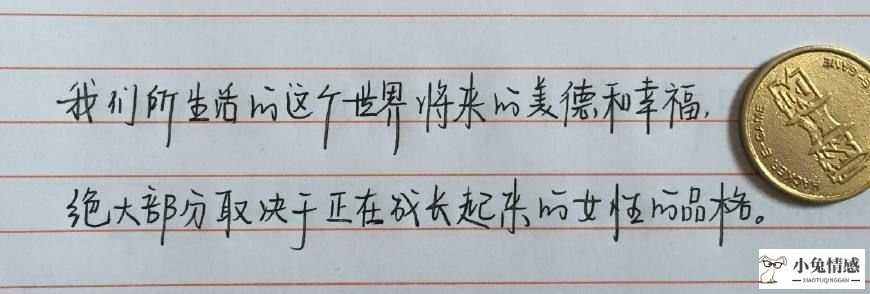 我们所生活的这个世界将来的美德和幸福,
绝大部分取决于正在成长起来的女性的品格。
HACKER E-GAME
E-GAME
小兔情感
XIAOTUQINGGAN